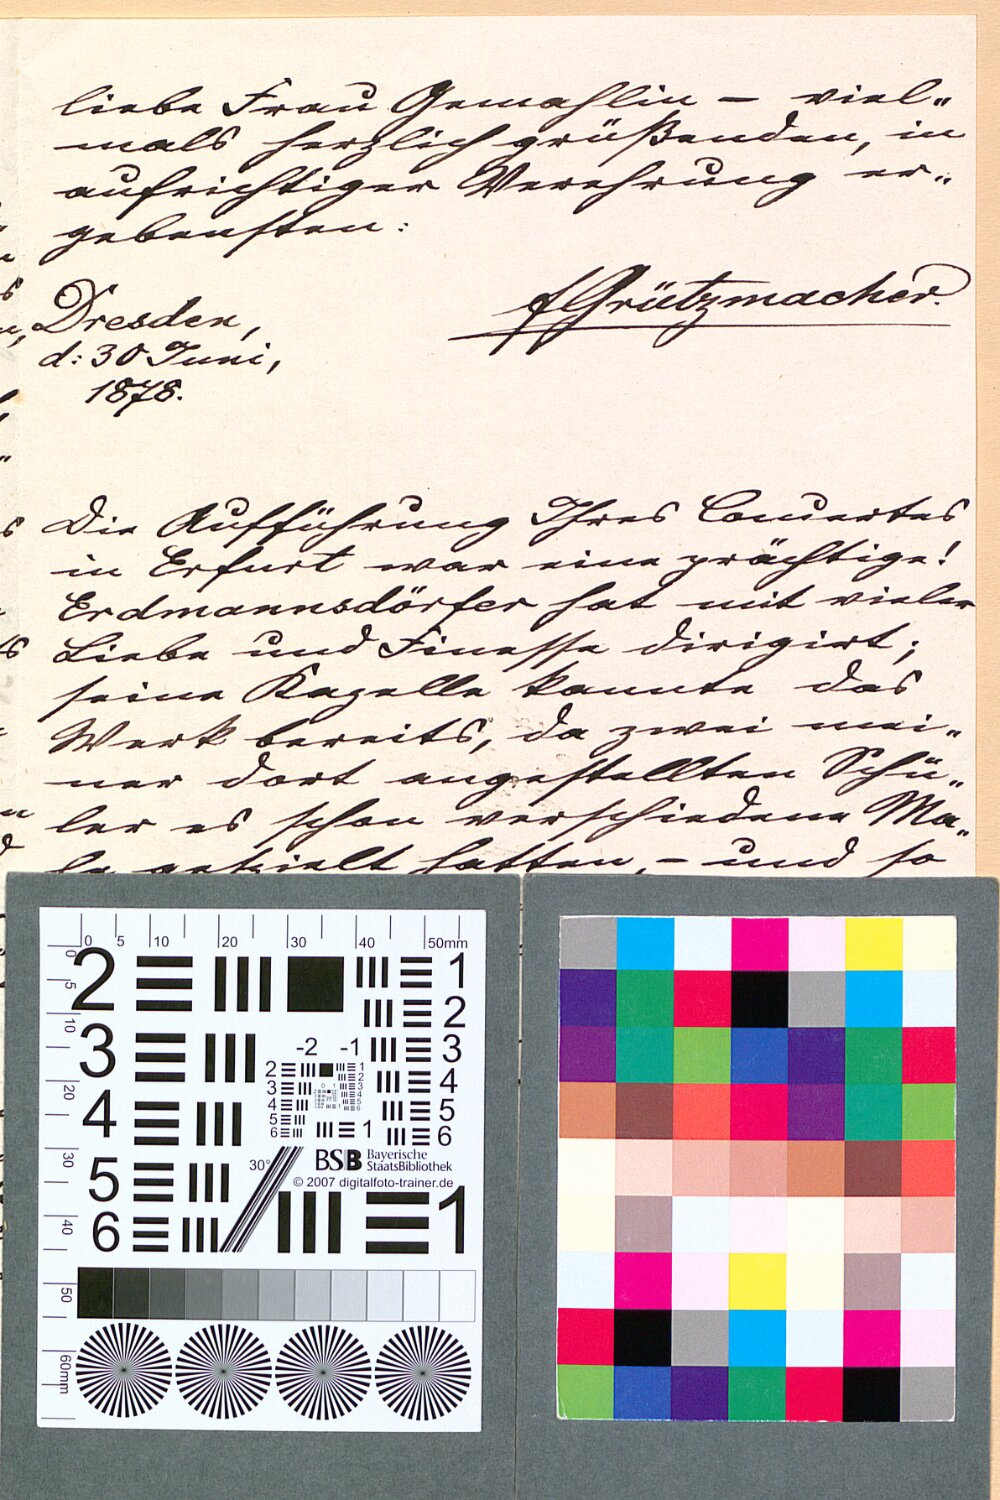 liebe Frau Gemahlin – viel„
mals herzlich grüßenden, in
aufrichtiger Verehrung er„
gebensten:
FGrützmacher.
Dresden,
d: 30 Juni,
1878.
Die Aufführung Ihres Concertes
in Erfurt war eine prächtige!
Erdmannsdörfer hat mit vieler
Liebe und Finesse dirigirt;
seine Kapelle kannte das
Werk bereits, da zwei mei„
ner dort angestellten Schü„
ler es schon verschiedene Ma„
le gespielt hatten, – und so
0 5 10 20 30 40 50mm
0 5 10 20 30 40 50 60mm
2 1
2
3 3
4 4
5 5
6 6
-2 -1
2 1
2
3 3
4 4
5 5
6 6
1
30°
BSB Bayerische
StaatsBibliothek
© 2007 digitalfoto-trainer.de
1